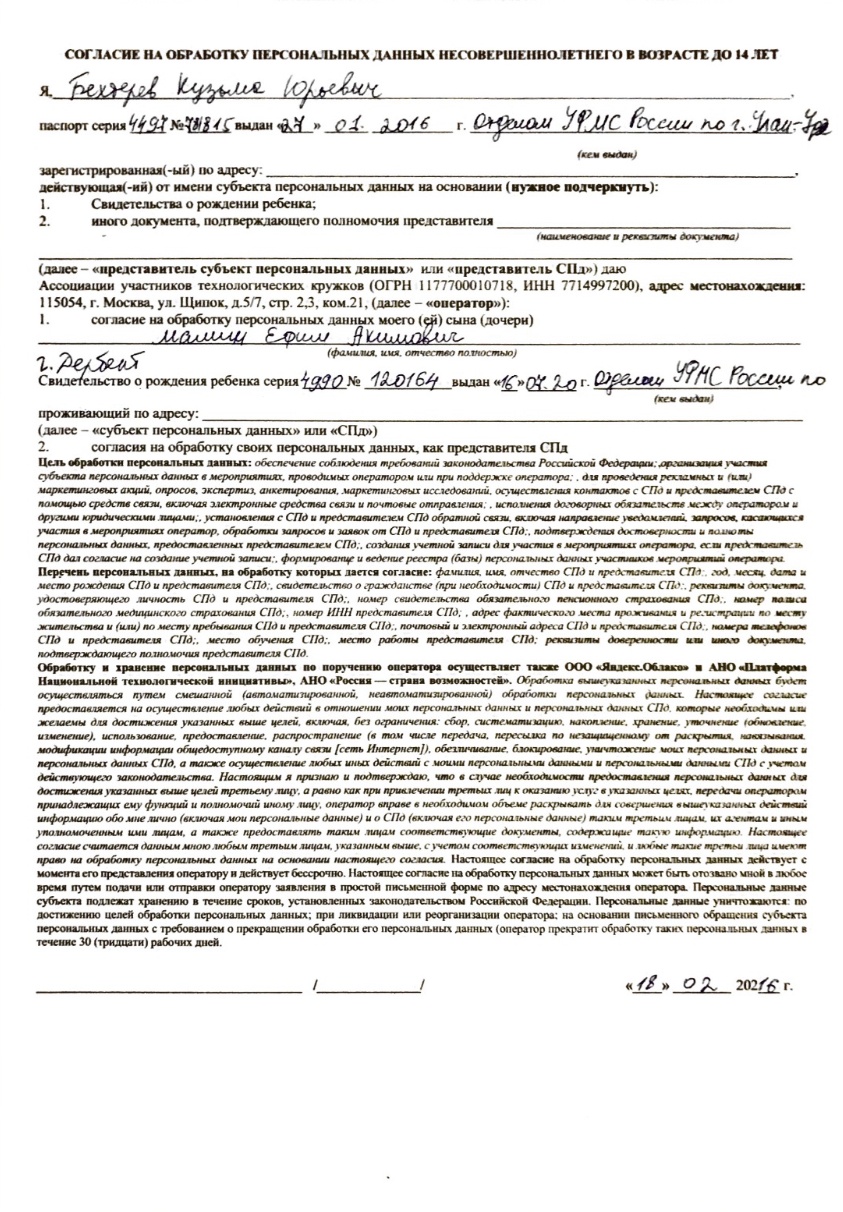 СОГЛАСИЕ НА ОБРАБОТКУ ПЕРСОНАЛЬНЫХ ДАННЫХ НЕСОВЕРШЕННОЛЕТНЕГО В ВОЗРАСТЕ ДО 14 ЛЕТ
Я, Бехтерев Кузьма Юрьевич,
паспорт серия 4497 № выдан «27» 01. 2016 г. Отделом УФМС России по г. Улан-Удэ
(кем выдан)
зарегистрированная(-ый) по адресу:
действующая(-ий) от имени субъекта персональных данных на основании (нужное подчеркнуть):
1. Свидетельства о рождении ребенка;
2. иного документа, подтверждающего полномочия представителя
(наименование и реквизиты документа)
(далее – «представитель субъект персональных данных» или «представитель СПд») даю
Ассоциации участников технологических кружков (ОГРН 1177700010718, ИНН 7714997200), адрес местонахождения:
115054, г. Москва, ул. Щипок, д.5/7, стр. 2,3, ком.21, (далее – «оператор»):
1. согласие на обработку персональных данных моего (ей) сына (дочери)
Ефим Акимович
(фамилия, имя, отчество полностью)
г. Дербент
Свидетельство о рождения ребенка серия 4990 № 120164 выдан «16» 07.20 г. Отделом УФМС России по
(кем выдан)
проживающий по адресу:
(далее – «субъект персональных данных» или «СПд»)
2. согласия на обработку своих персональных данных, как представителя СПд
Цель обработки персональных данных: обеспечение соблюдения требований законодательства Российской Федерации; ,организация участия
субъекта персональных данных в мероприятиях, проводимых оператором или при поддержке оператора; , для проведения рекламных и (или)
маркетинговых акций, опросов, экспертиз, анкетирования, маркетинговых исследований, осуществления контактов с СПд и представителем СПд с
помощью средств связи, включая электронные средства связи и почтовые отправления; , исполнения договорных обязательств между оператором и
другими юридическими лицами;, установления с СПд и представителем СПд обратной связи, включая направление уведомлений, запросов, касающихся
участия в мероприятиях оператор, обработки запросов и заявок от СПд и представителя СПд;, подтверждения достоверности и полноты
персональных данных, предоставленных представителем СПд;, создания учетной записи для участия в мероприятиях оператора, если представитель
СПд дал согласие на создание учетной записи;, формирование и ведение реестра (базы) персональных данных участников мероприятий оператора.
Перечень персональных данных, на обработку которых дается согласие: фамилия, имя, отчество СПд и представителя СПд;, год, месяц, дата и
место рождения СПд и представителя СПд;, свидетельство о гражданстве (при необходимости) СПд и представителя СПд;, реквизиты документа,
удостоверяющего личность СПд и представителя СПд;, номер свидетельства обязательного пенсионного страхования СПд;, номер полиса
обязательного медицинского страхования СПд;, номер ИНН представителя СПд; , адрес фактического места проживания и регистрации по месту
жительства и (или) по месту пребывания СПд и представителя СПд;, почтовый и электронный адреса СПд и представителя СПд;, номера телефонов
СПд и представителя СПд;, место обучения СПд;, место работы представителя СПд; реквизиты доверенности или иного документа,
подтверждающего полномочия представителя СПд.
Обработку и хранение персональных данных по поручению оператора осуществляет также ООО «Яндекс.Облако» и АНО «Платформа
Национальной технологической инициативы», АНО «Россия — страна возможностей». Обработка вышеуказанных персональных данных будет
осуществляться путем смешанной (автоматизированной, неавтоматизированной) обработки персональных данных. Настоящее согласие
предоставляется на осуществление любых действий в отношении моих персональных данных и персональных данных СПд, которые необходимы или
желаемы для достижения указанных выше целей, включая, без ограничения: сбор, систематизацию, накопление, хранение, уточнение (обновление,
изменение), использование, предоставление, распространение (в том числе передача, пересылка по незащищенному от раскрытия, навязывания,
модификации информации общедоступному каналу связи [сеть Интернет]), обезличивание, блокирование, уничтожение моих персональных данных и
персональных данных СПд, а также осуществление любых иных действий с моими персональными данными и персональными данными СПд с учетом
действующего законодательства. Настоящим я признаю и подтверждаю, что в случае необходимости предоставления персональных данных для
достижения указанных выше целей третьему лицу, а равно как при привлечении третьих лиц к оказанию услуг в указанных целях, передачи оператором
принадлежащих ему функций и полномочий иному лицу, оператор вправе в необходимом объеме раскрывать для совершения вышеуказанных действий
информацию обо мне лично (включая мои персональные данные) и о СПд (включая его персональные данные) таким третьим лицам, их агентам и иным
уполномоченным ими лицам, а также предоставлять таким лицам соответствующие документы, содержащие такую информацию. Настоящее
согласие считается данным мною любым третьим лицам, указанным выше, с учетом соответствующих изменений, и любые такие третьи лица имеют
право на обработку персональных данных на основании настоящего согласия. Настоящее согласие на обработку персональных данных действует с
момента его представления оператору и действует бессрочно. Настоящее согласие на обработку персональных данных может быть отозвано мной в любое
время путем подачи или отправки оператору заявления в простой письменной форме по адресу местонахождения оператора. Персональные данные
субъекта подлежат хранению в течение сроков, установленных законодательством Российской Федерации. Персональные данные уничтожаются: по
достижению целей обработки персональных данных; при ликвидации или реорганизации оператора; на основании письменного обращения субъекта
персональных данных с требованием о прекращении обработки его персональных данных (оператор прекратит обработку таких персональных данных в
течение 30 (тридцати) рабочих дней.
/ / «18» 02 20216 г.